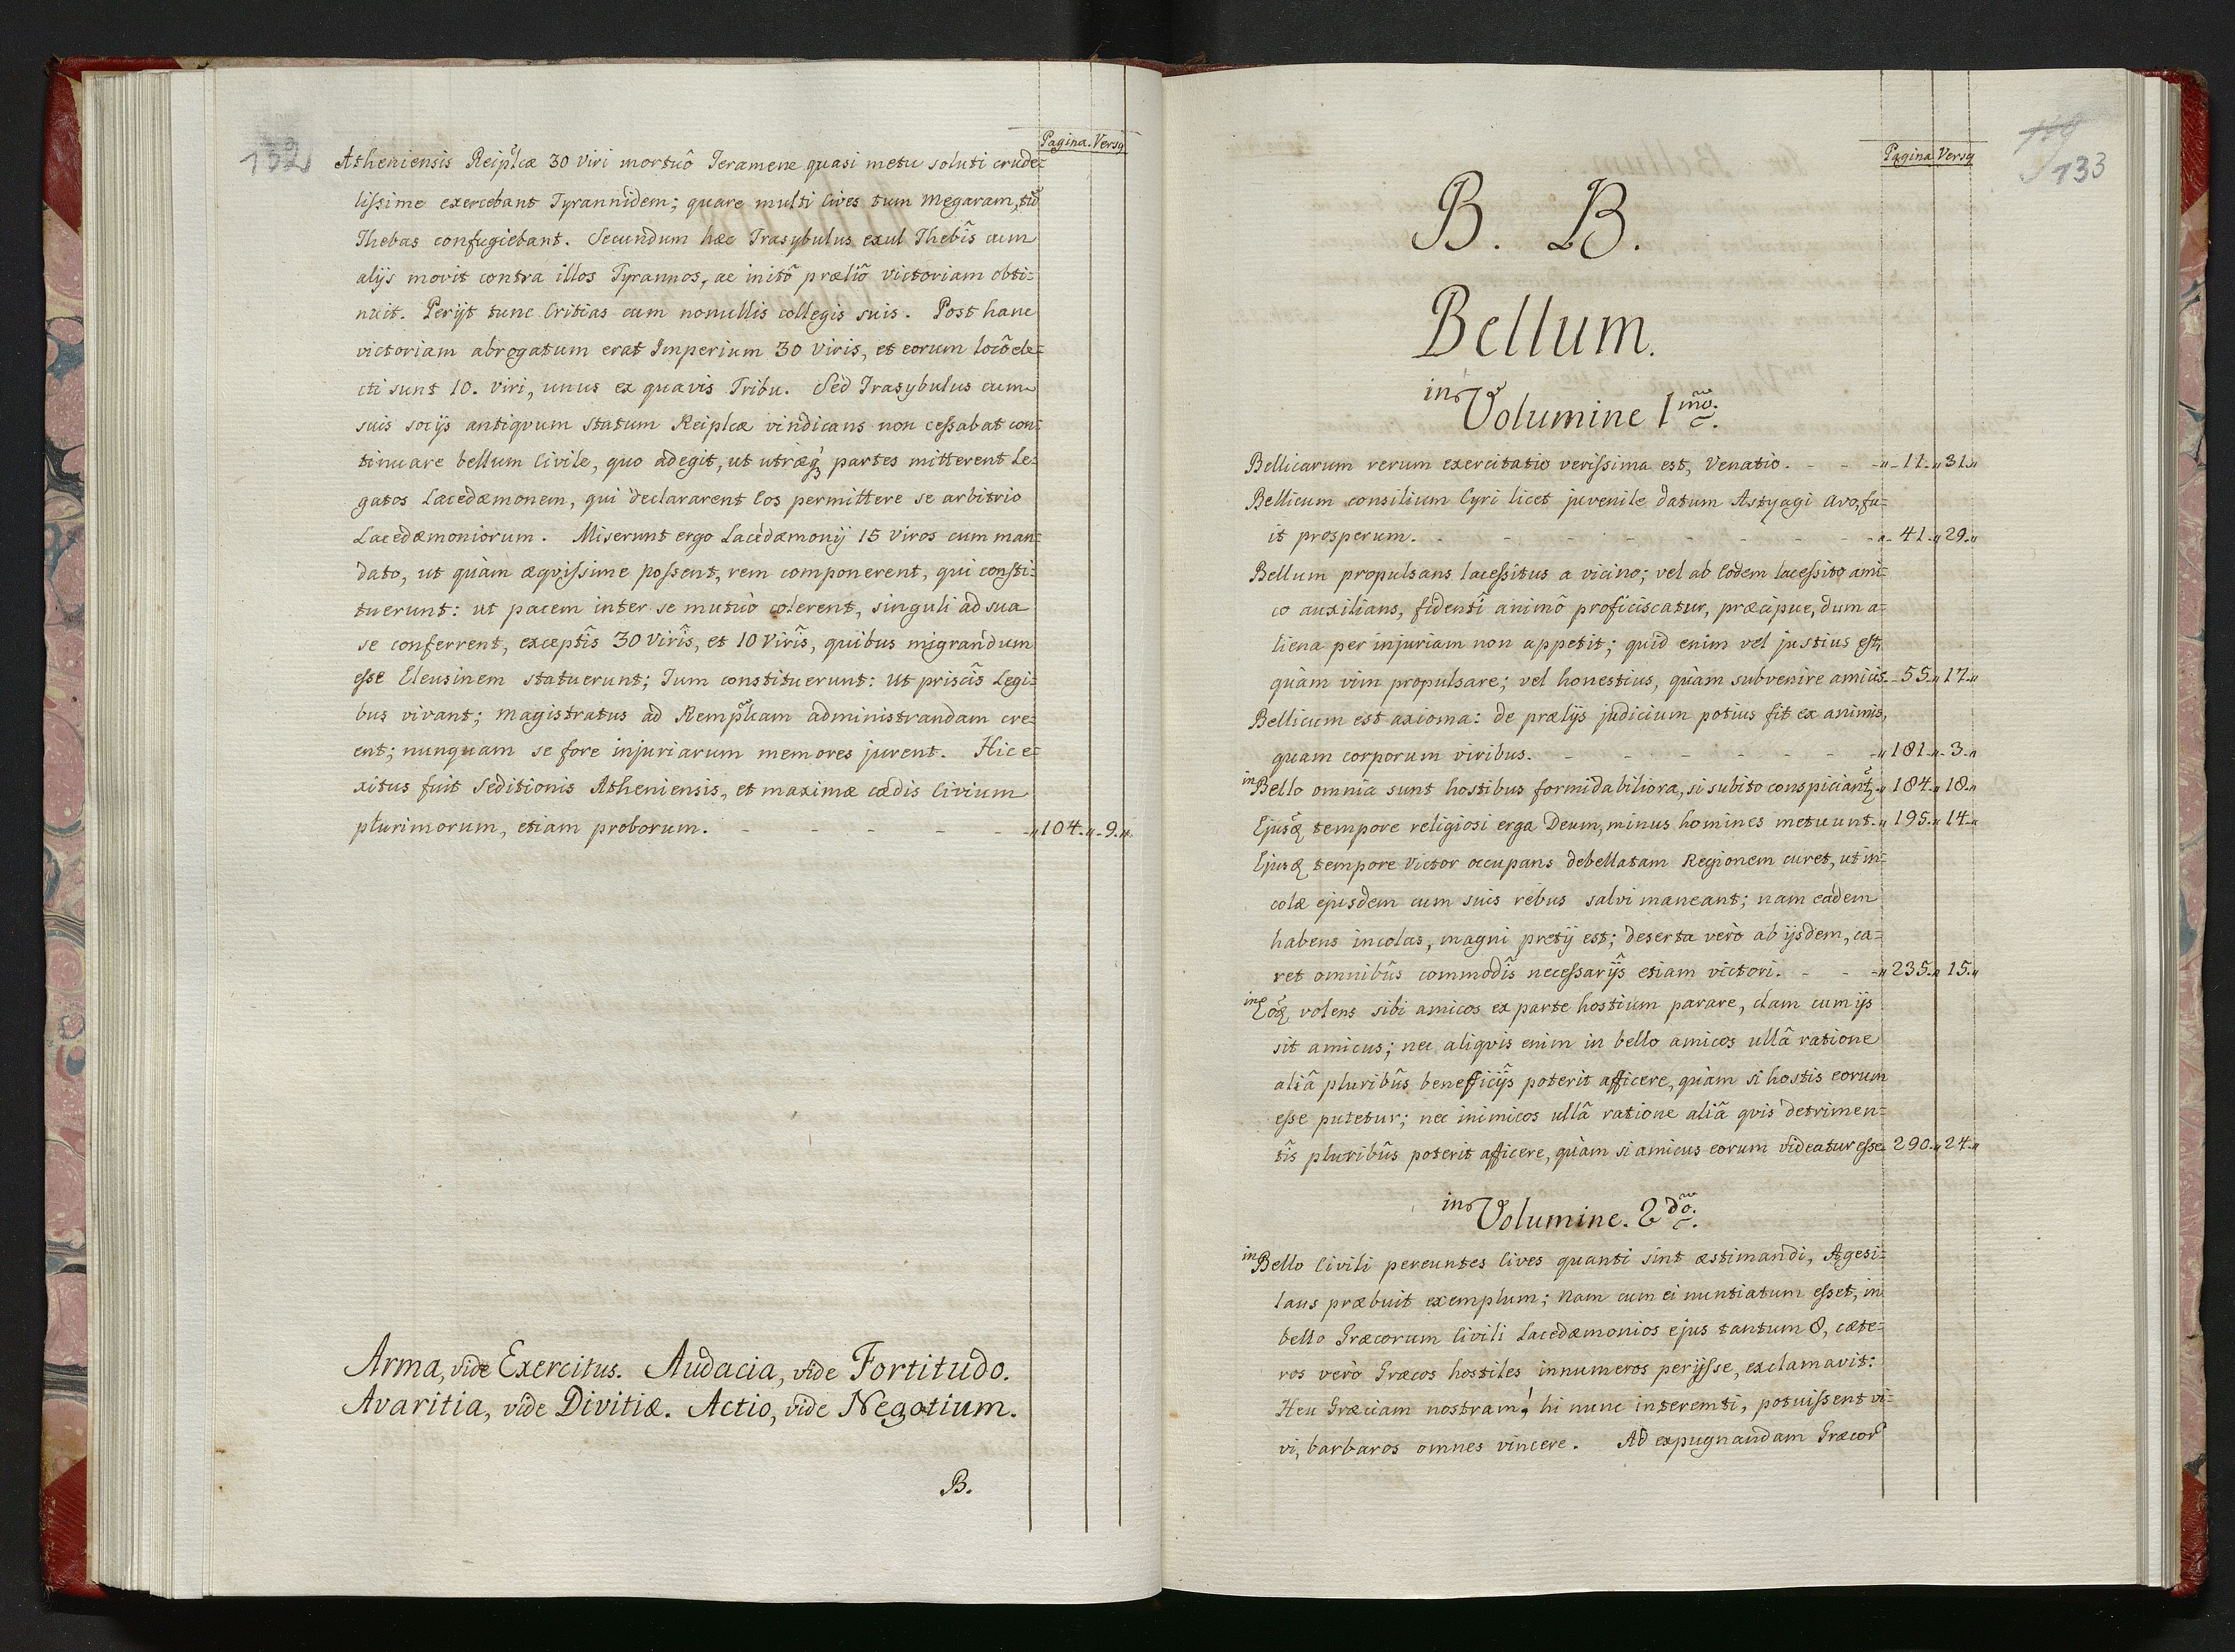 132
Pagina. Versq
Atheniensis Reiplcæ 30 viri mortuô Teramene quasi metu soluti crude=
lissime exercebant Tyrannidem; quare multi Cives tum Megaram, tũ
Thebas confugiebant. Secundum hæc Trasybulus exul Thebîs cum
alijs movit contra illos Tyrannos, ac initô præliô victoriam obti=
nuit. Perijt tunc Critias cum nonullis collegis suis. Post hanc
victoriam abrogatum erat Imperium 30 viris, et eorum locô ele=
cti sunt 10. viri, unus ex quavis Tribu. Sed Trasybulus cum
suis socijs antiqvum statum Reiplcæ vindicans non cessabat con=
tinuare bellum Civile, quo adegit, ut utræq́ partes mitterent Le=
gatos Lacedæmonem, qui declararent Eos permittere se arbitrio
Lacedæmoniorum. Miserunt ergo Lacedæmonij 15 viros cum man=
dato, ut quàm æqvissime possent, rem componerent, qui consti=
tuerunt: ut pacem inter se mutuò colerent, singuli ad sua
se conferrent, exceptîs 30 virîs, et 10 virîs, quibus migrandum
esse Eleusinem statuerunt; Tum constituerunt: ut priscîs Legi=
bus vivant; magistratus ad Remplcam administrandam cre=
ent; nunquam se fore injuriarum memores jurent. Hic e=
xitus fuit Seditionis Atheniensis, et maximæ cædis Civium
plurimorum, etiam proborum. - - - - - " 104. " 9. "
Arma, vide Exercitus. Audacia, vide Fortitudo.
Avaritia, vide Divitiæ. Actio, vide Negotium.
B.
133
Pagina Versq
B. B.
Bellum.
in Volumine 1mo.
Bellicarum rerum exercitatio verissima est, Venatio. - - - " 11. " 31. "
Bellicum consilium Cyri licet juvenile datum Astyagi avo, fu=
it prosperum. - - - - - - - - - " 41. " 29. "
Bellum propulsans lacessitus a vicino; vel ab Eodem lacessito ami=
co auxilians, fidentî animô proficiscatur, præcipue, dum a=
liena per injuriam non appetit; quid enim vel justius est,
quàm vim propulsare; vel honestius, quàm subvenire amicis. - 55. " 17. "
Bellicum est axioma: de prælijs judicium potius fit ex animis,
quam corporum viribus. - - - - - - - " 181. " 3. "
in Bello omnia sunt hostibus formidabiliora, si subito conspiciantq̃ " 184. " 18. "
Ejusq̃ tempore religiosi erga Deum, minus homines metuunt. " 195. " 14. "
Ejusq̃ tempore Victor occupans debellatam Regionem curet, ut in=
colæ ejusdem cum suis rebus salvi maneant; nam eadem
habens incolas, magni pretij est; deserta verò ab ijsdem, ca=
ret omnibûs commodîs necessarijs etiam victori. - - - " 235. " 15. "
in Eoq̃ volens sibi amicos ex parte hostium parare, clam cum ijs
sit amicus; nec aliqvis enim in bello amicos ullâ ratione
aliâ pluribûs beneficijs poterit afficere, quàm si hostis eorum
esse putetur; nec inimicos ullâ ratione aliâ qvis detrimen=
tîs pluribûs poterit afficere, quàm si amicus eorum videatur esse. 290. " 24. "
in Volumine. 2do.
in Bello Civili pereuntes Cives quanti sint æstimandi, Agesi=
laus præbuit exemplum; nam cum ei nuntiatum esset, in
bello Græcorum Civili Lacedæmonios ejus tantum 8, cæte=
ros verò Græcos hostiles innumeros perijsse, exclamavit:
Heu Græciam nostram! hi nunc interemti, potuissent vi=
vi, barbaros omnes vincere. Ad expugnandam Græcor̃